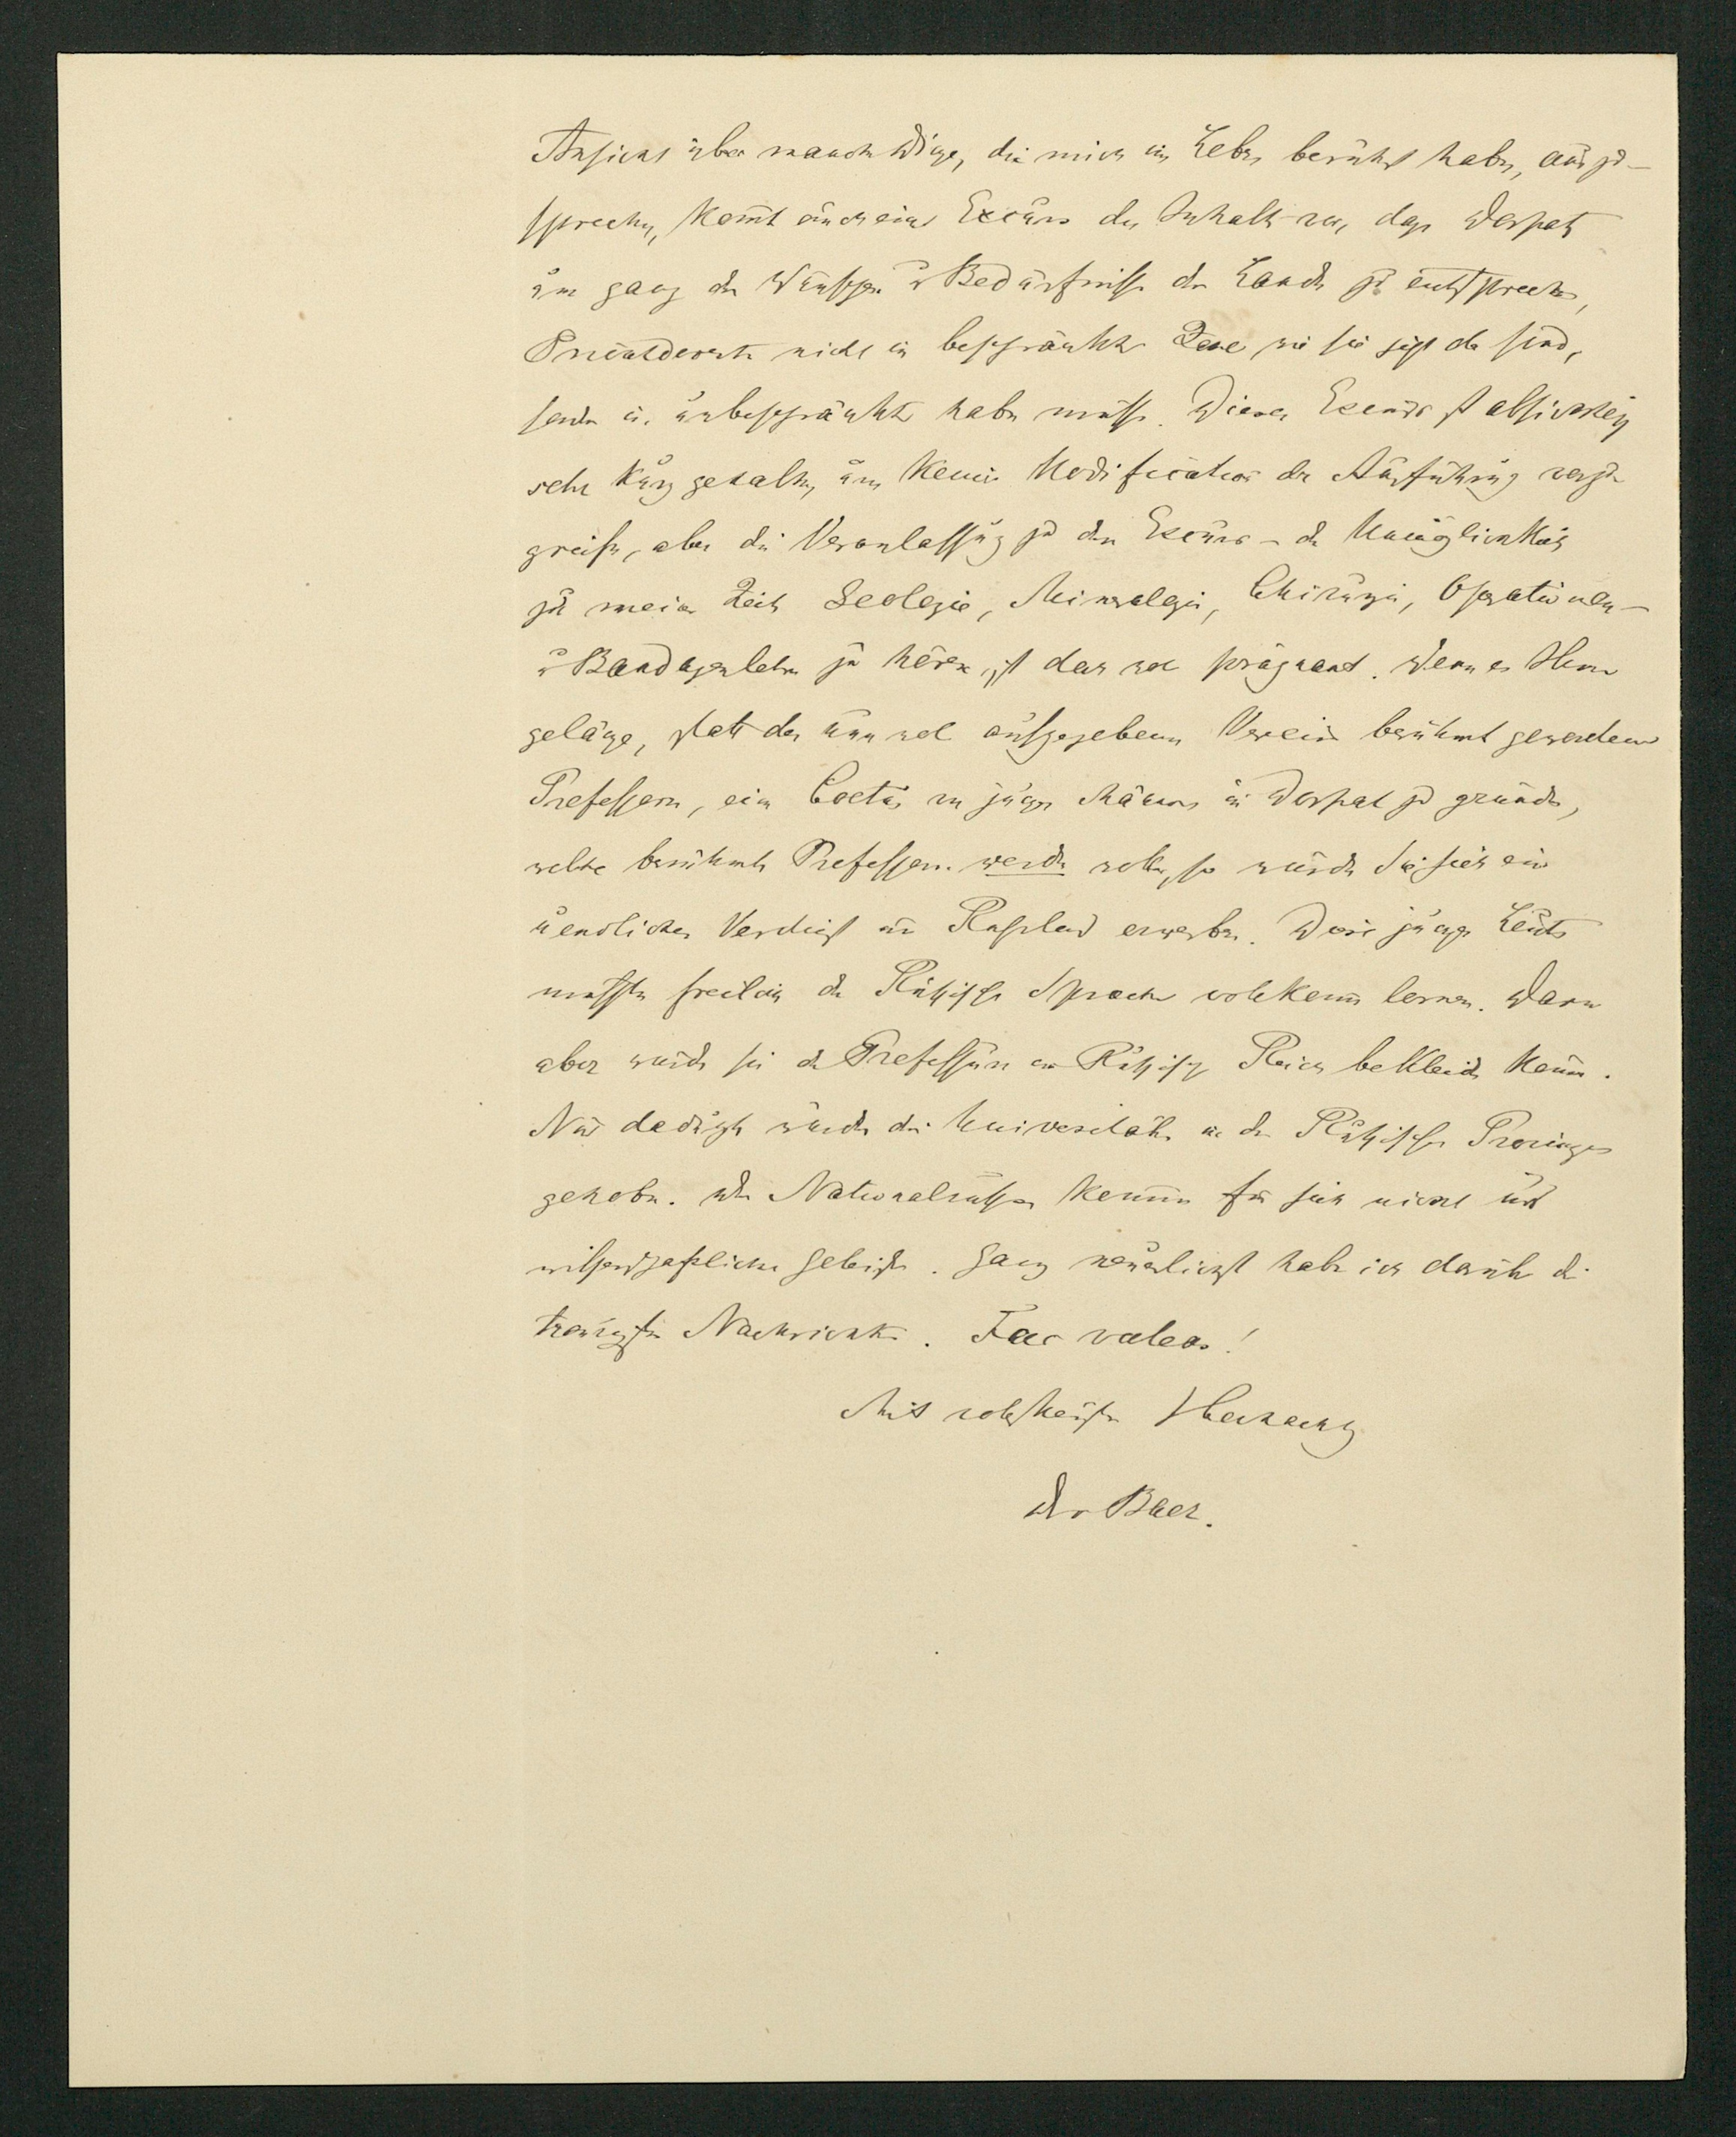 Ansicht über manche Dinge, die mich im Leben berührt haben, auszu-
sprechen, kommt auch ein Excurs des Inhalts vor, dass Dorpat
um ganz den Wünschen u Bedürfnissen des Landes zu entsprechen,
Privatdocenten nicht in beschränkter Zahl wie sie jetzt da sind,
sondern in unbeschränkter haben müsse. Dieser Excurs ist absichtlich
sehr kurz gehalten, um keiner Modification der Ausführung vorzu
greifen, aber die Veranlassung zu dem Excurs – die Unmöglichkeit
zu meiner Zeit Zoologie, Mineralogie, Chirurgie, Operationen-
u Bandagenlehre zu hören, ist doch wol prägnant. Wenn es Ihnen
gelänge, statt des nun wol aufgegebenen Vereins berühmt gewordener
Professoren, ein Coetus von jungen Männern in Dorpat zu gründen,
welche berühmte Professoren werden wollen, so würden Sie sich ein
unendliches Verdienst um Russland erwerben. Diese jungen Leute
müssten freilich die Russische Sprache vollkommen lernen. Dann
aber würden sie die Professuren im Russischen Reich bekleiden können.
Nur dadurch würden die Universitäten in den Russischen Provinzen
gehoben. Die Nationalrussen kommen für sich nicht ins
wissenschaftliche Gebiet. Ganz neuerlichst habe ich darüber die
traurigsten Nachrichten. Fac valeas!
Mit vollster Hochachtung
Dr Baer.